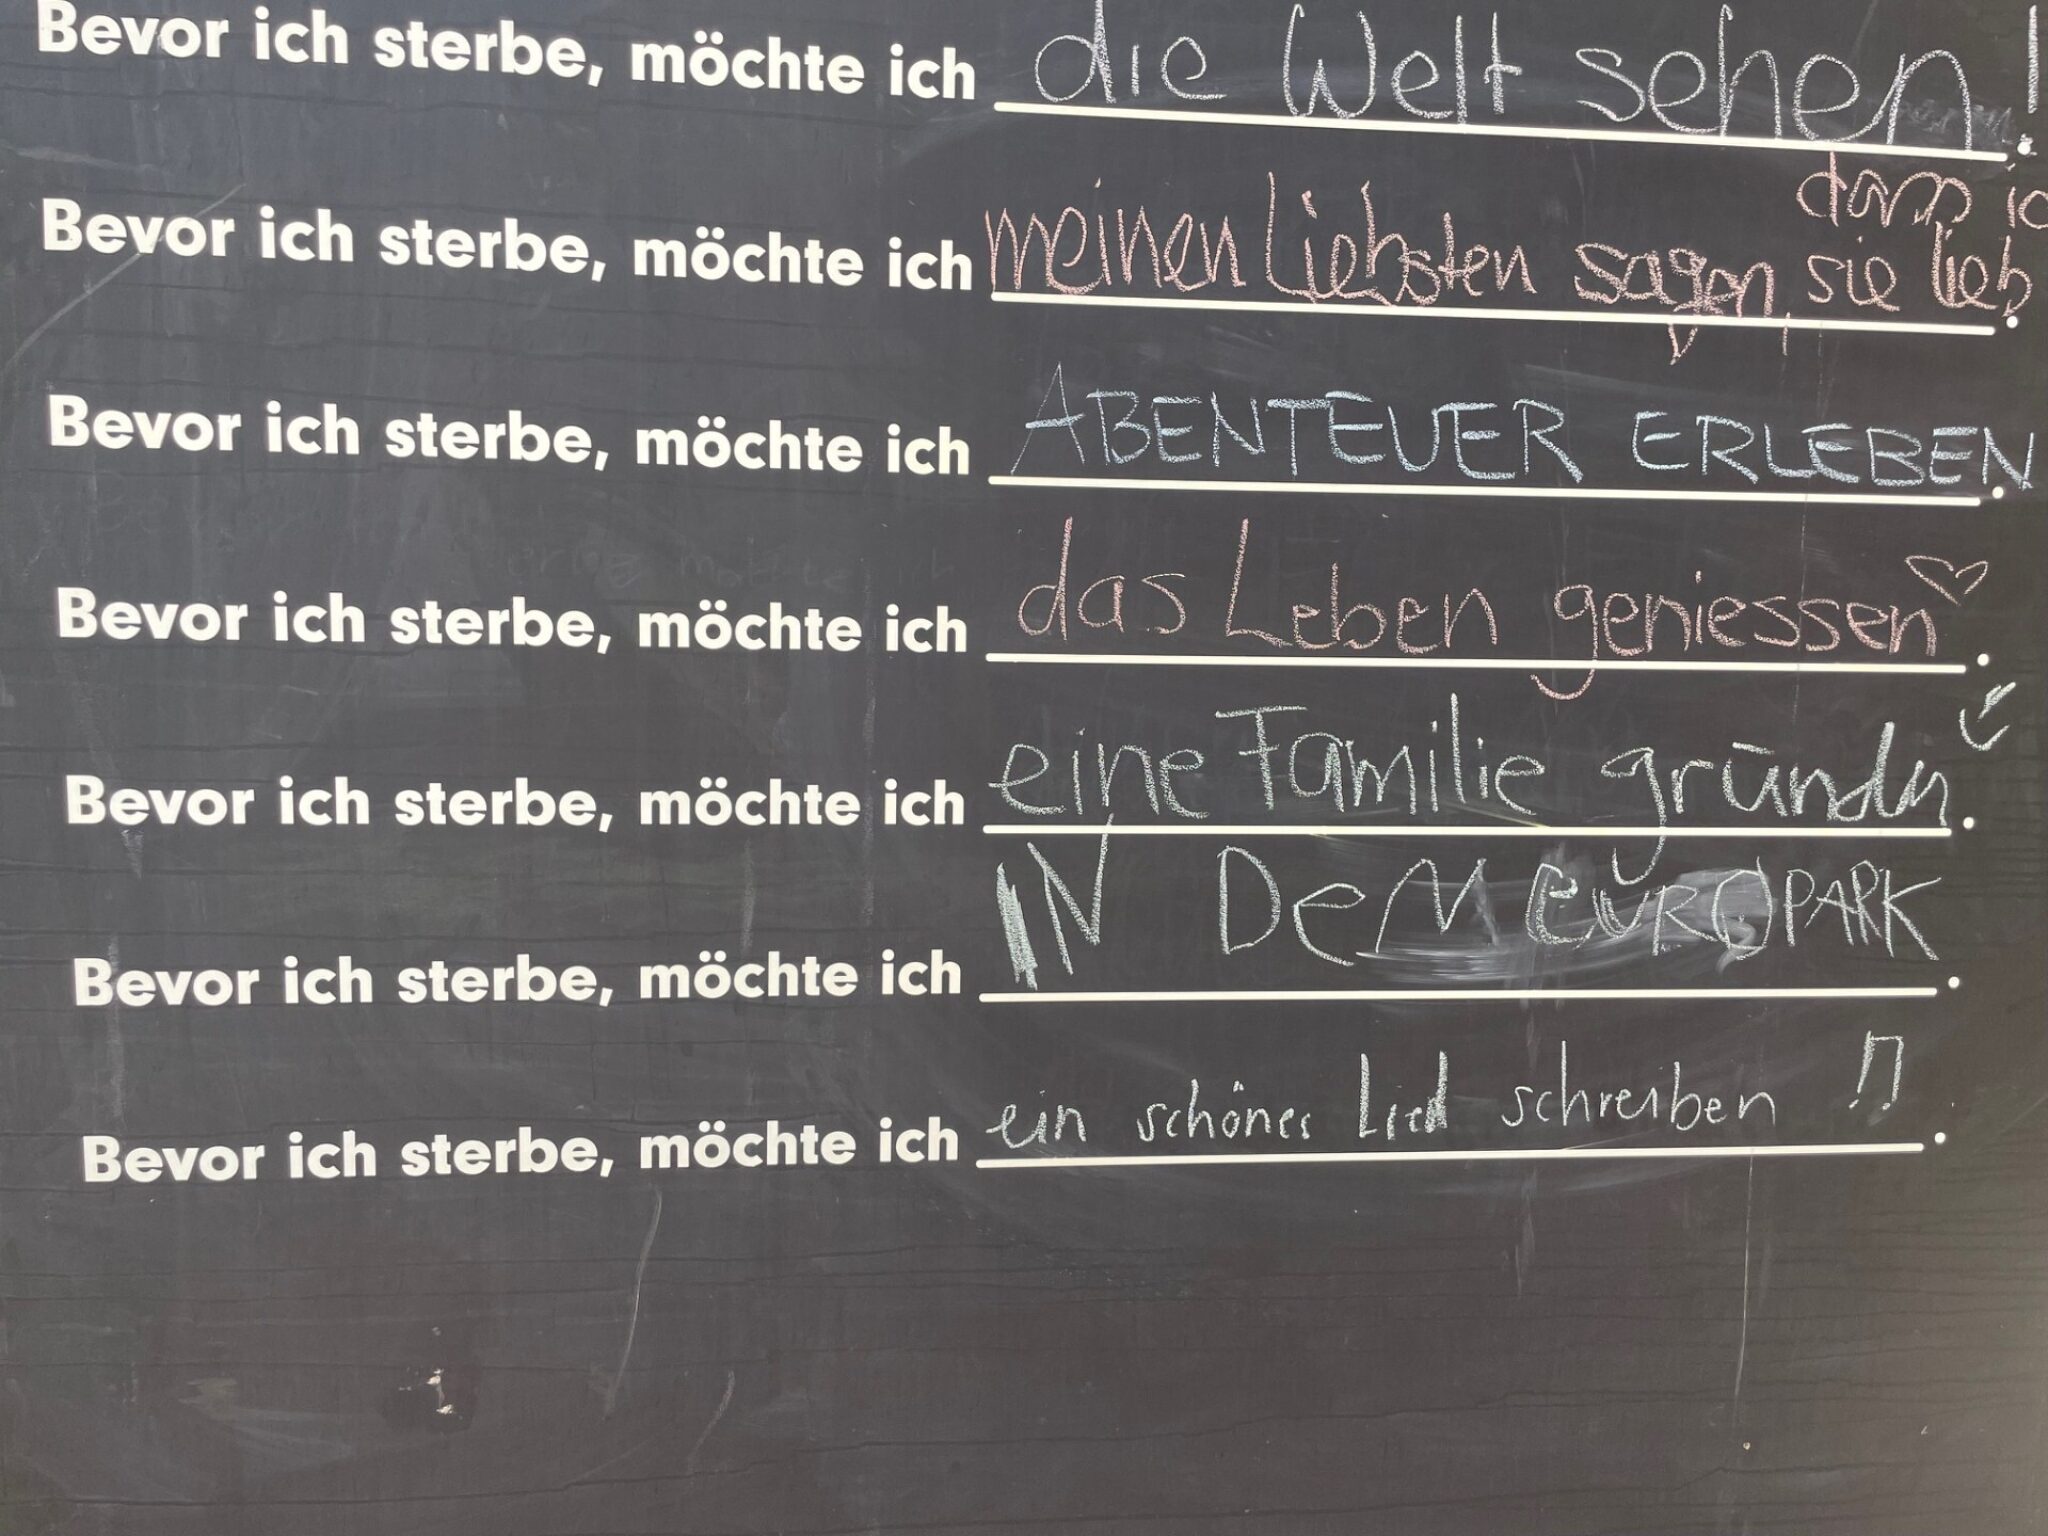 Bevor ich sterbe, möchte ich die Welt sehen!.
dass ic
Bevor ich sterbe, möchte ich meinen Liebsten sagen, sie lieb.
Bevor ich sterbe, möchte ich ABENTEUER ERLEBEN.
Bevor ich sterbe, möchte ich das Leben geniessen ♡.
Bevor ich sterbe, möchte ich eine Familie gründen.
Bevor ich sterbe, möchte ich IN DEN EUROPAPARK.
Bevor ich sterbe, möchte ich ein schönes Lied schreiben ♫.